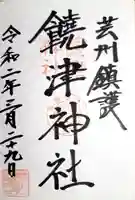 芸州鎮護
饒津神社
令和二年二月二十九日